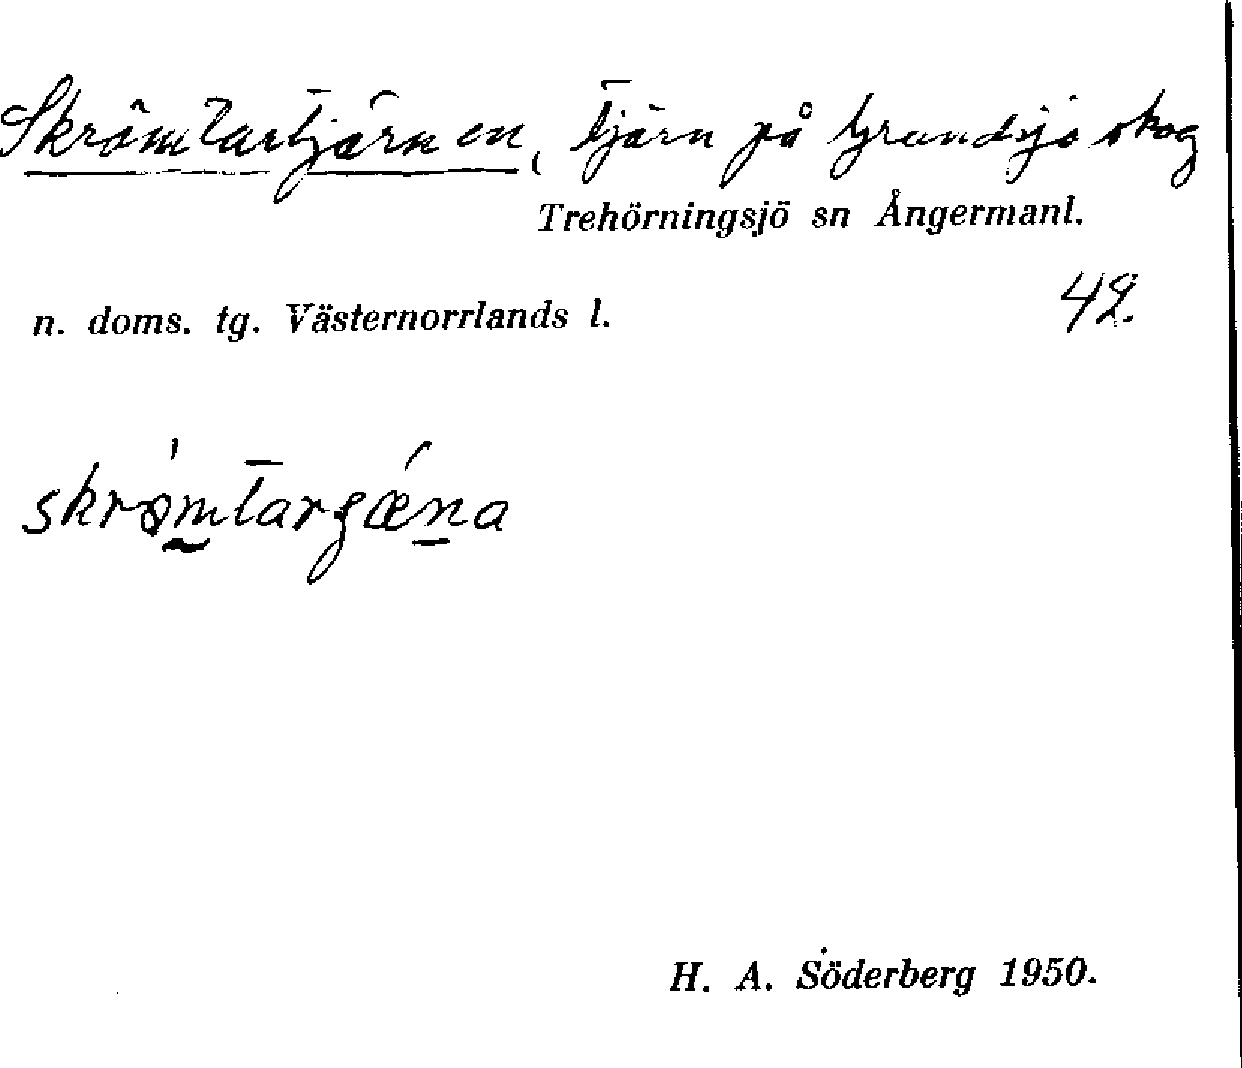 Skrömtartjärnen, tjärn på Grundsjö skog
Trehörningsjö sn Ångermanl.
n. doms. tg. Västernorrlands l.
42.
H. A. Söderberg 1950.